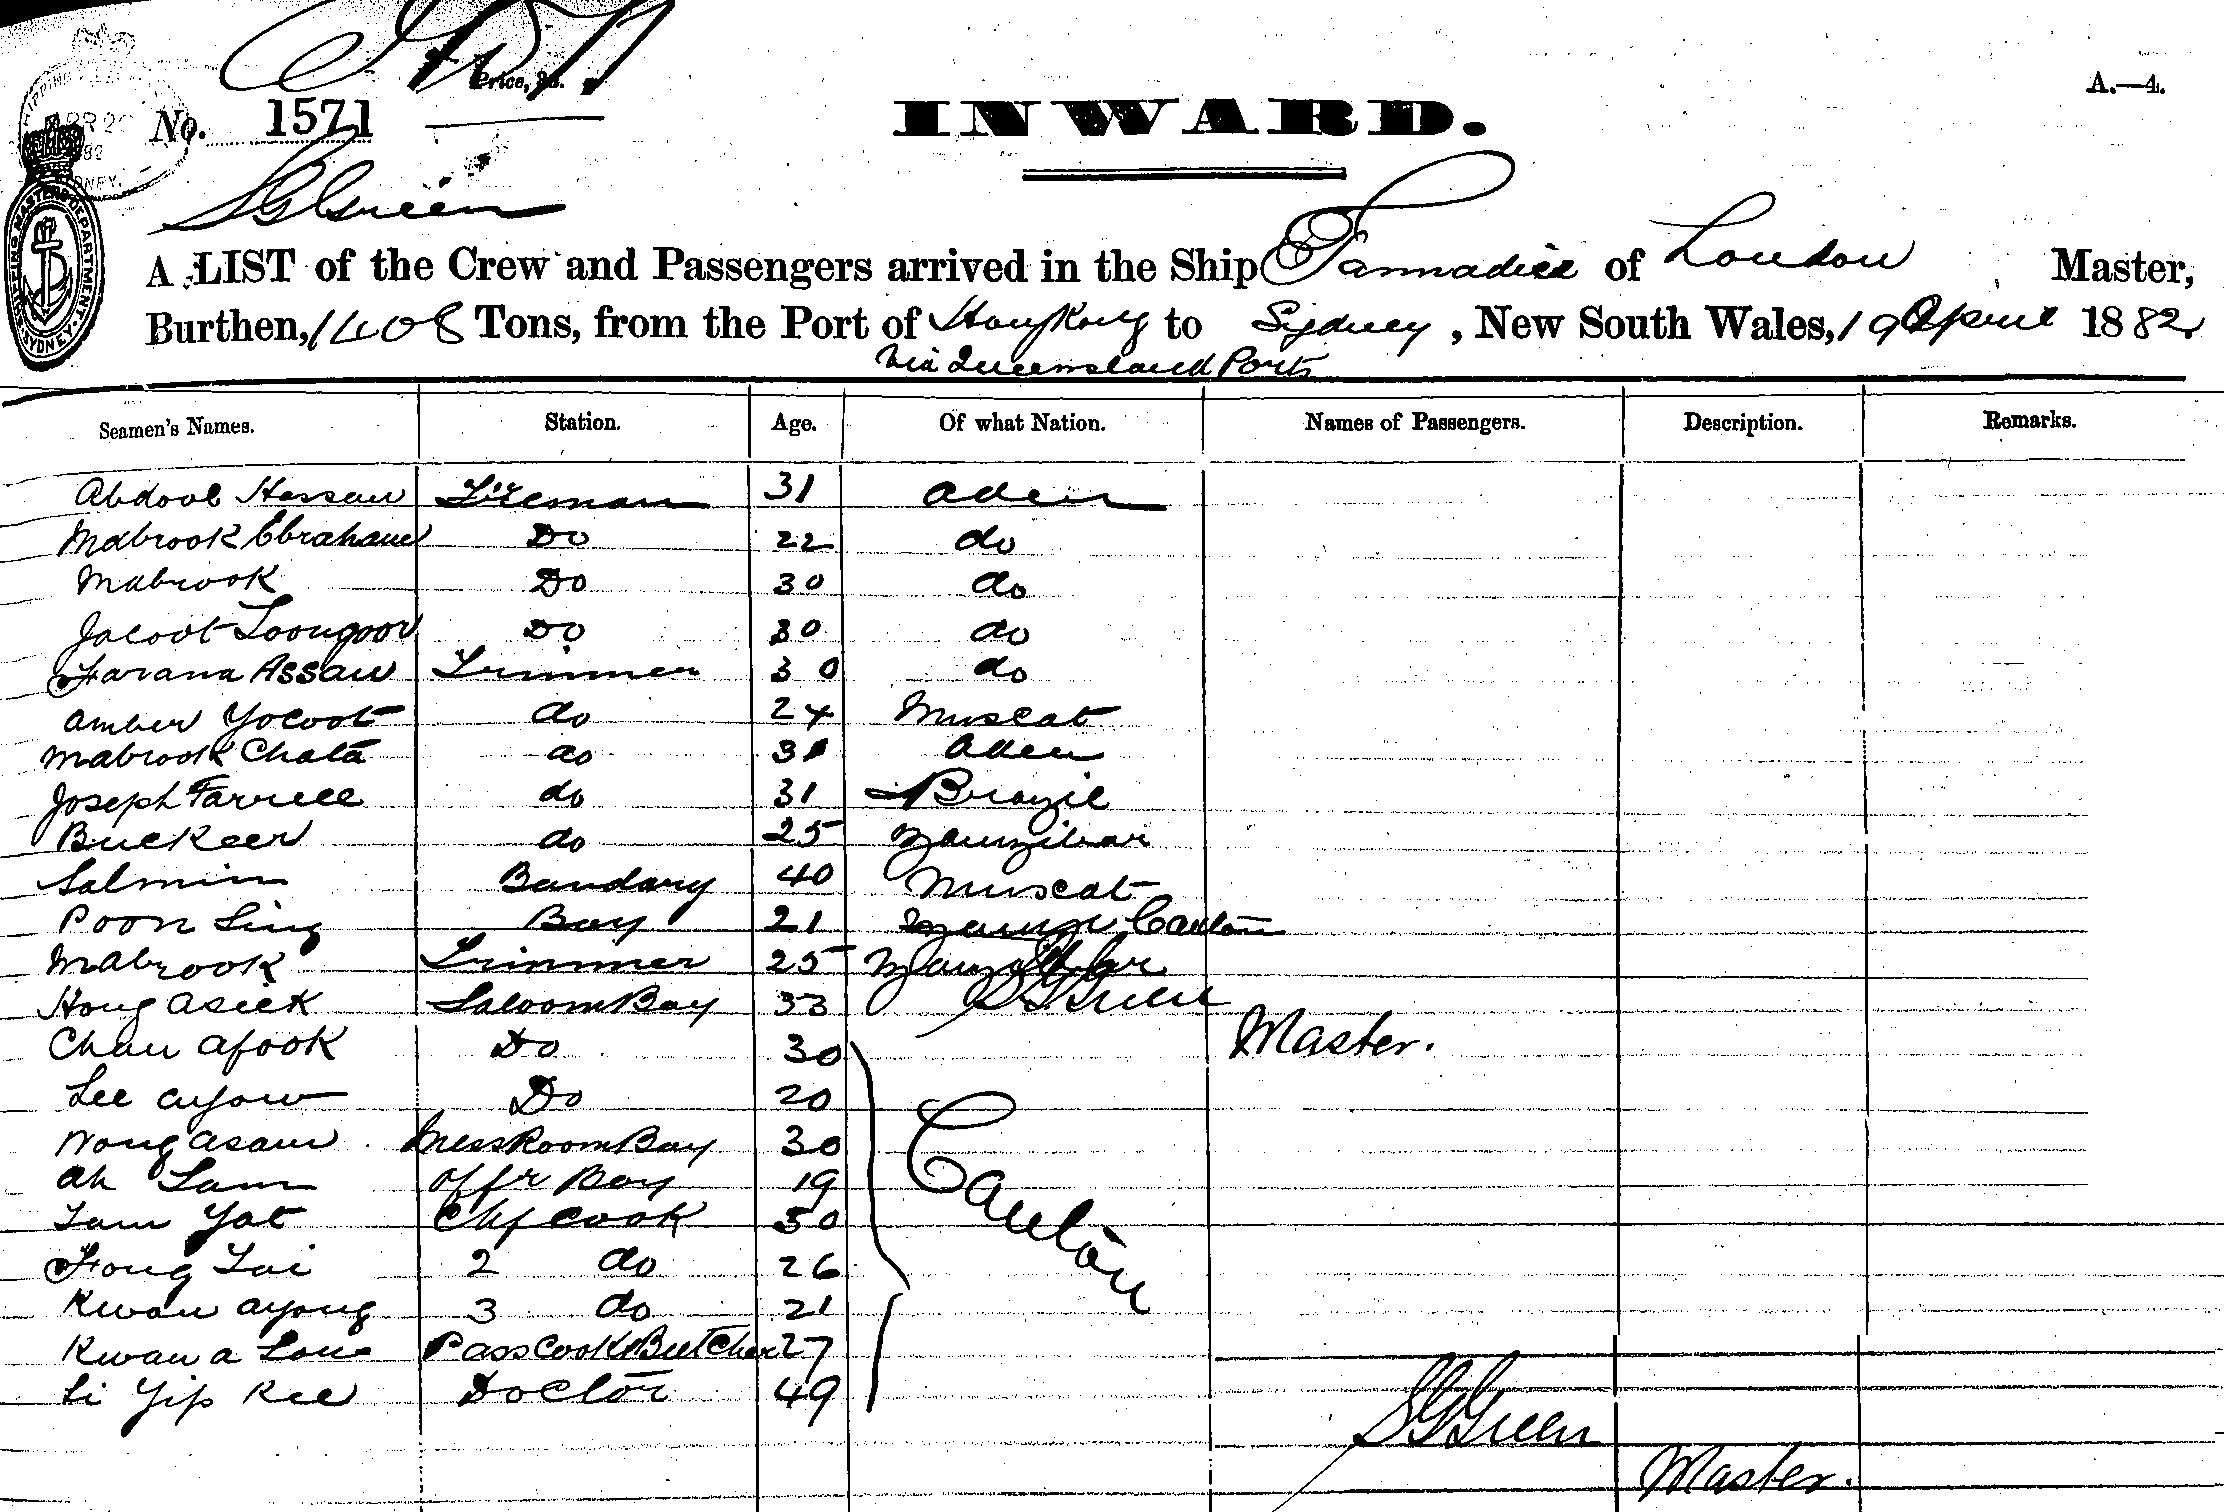 Price, 3d.
A.—4.
No. 1571
INWARD.
S G Green
A LIST of the Crew and Passengers arrived in the Ship Fannadice of London Master,
Burthen, 1408 Tons, from the Port of HongKong to Sydney, New South Wales, 19 April 1882
Via Queensland Ports
Seamen's Names. Station. Age. Of what Nation. Names of Passengers. Description. Remarks.
Abdool Hassan Fireman 31 Aden
Mabrook Ebrahaim Do 22 do
Mabrook Do 30 do
Jacoot Do 30 do
Farana Assau Trimmer 30 do
Amber Yocoot do 24 Muscat
Mabrook Chata do 31 Aden
Joseph Farrell do 31 Brazil
Buckeer do 25 Zanzibar
Salmin Bandary 40 Muscat
Poon Sing Boy 21 Canton
Mabrook Trimmer 25 Zanzibar
Hong Asick Saloom Boy 33
S G Green
Chau Afook Do 30
Master.
Lee Ayow Do 20
Wong Asam Mess Room Boy 30
Ah Lam Offr Boy 19
Canton
Tam Yat Chf Cook 50
Fong Tai 2 do 26
Kwan Ayong 3 do 21
Kwan a Lou Pass Cook & Butcher 27
Li Yip Kee Doctor 49
S G Green
Master.